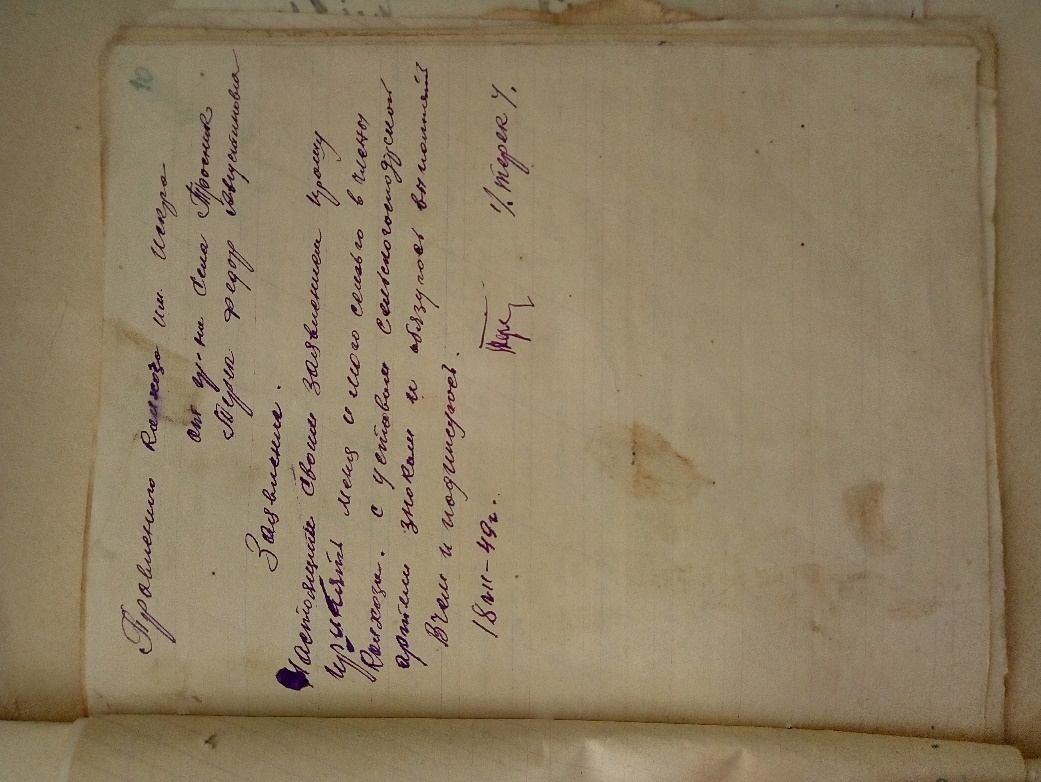 10
Правлению колхоза им. Искра
от гр-на села Тросник
Терек Федор Августинович
Заявление.
Настоящим своим заявлением прошу
принять меня и мою семью в члены
колхоза. с уставом сельскогосподуской
артели знаком и обязуюсь выполнять
В чем и подписуюсь.
18 VII-49г. /Терек/.